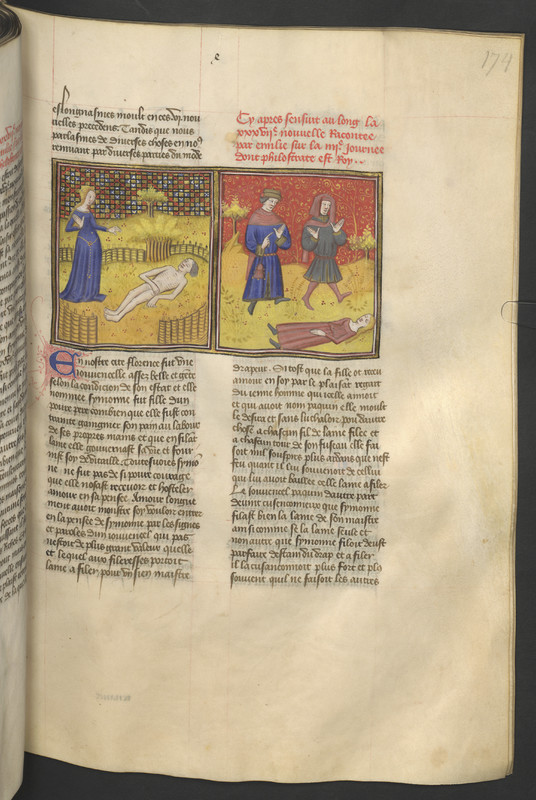 174
eslongnasmes moult en ces dix nou
uelles precedens. Tandis que nous
parlasmes de diuerses choses en no⁹
tenniant par diuerses parties du mõde
Cy apres sensuit au long la
xxxvijᵉ nouuelle Racontee
par emilie sur la iiijᵉ Journee
dont philostrate est Roy
En nostre cite florence fut vne
iouuencelle assez belle et gẽte
selon la condicion de son estat et elle
nommee symonne fut fille dun
poure pere combien que elle fust con
trainte gaingnier son pain au labour
de ses propres mains et que en filãt
laine elle gouuernast sa vie et sour
mist soy de vitaille. Toutesuoies symõ
ne ne fut pas de si poure courage
que elle nosast receuoir et hosteler
amour en sa pensee. Amour longue
ment auoit moustre soy vouloir entrer
en la pensee de symonne par les signes
et paroles dun iouuencel qui pas
nestoit de plus grant valeur quelle
et lequel aux fileresses portoit
laine a filer pour vng sien maistre
drapier. Si tost que la fille ot receu
amour en soy par le plaisãt regart
du ieune homme qui icelle amoit
et qui auoit nom paquin elle moult
le desira et sans luchaloir pou dautre
chose a chascun fil de laine filee et
a chascun tour de son fuseau elle fai
soit mil souspirs plus ardans que nest
feu quant il lui souuenoit de cellui
qui lui auoit baillee celle laine a filer
Le iouuencel paquin dautre part
deuint cusenconneux que symonne
filast bien la laine de son maistre
ainsi comme se la laine seule et
non autre que symonne filoit deust
parfaire destaim du drap et a filer
il la cusanconnoit plus fort et plo
souuent quil ne faisoit les autres